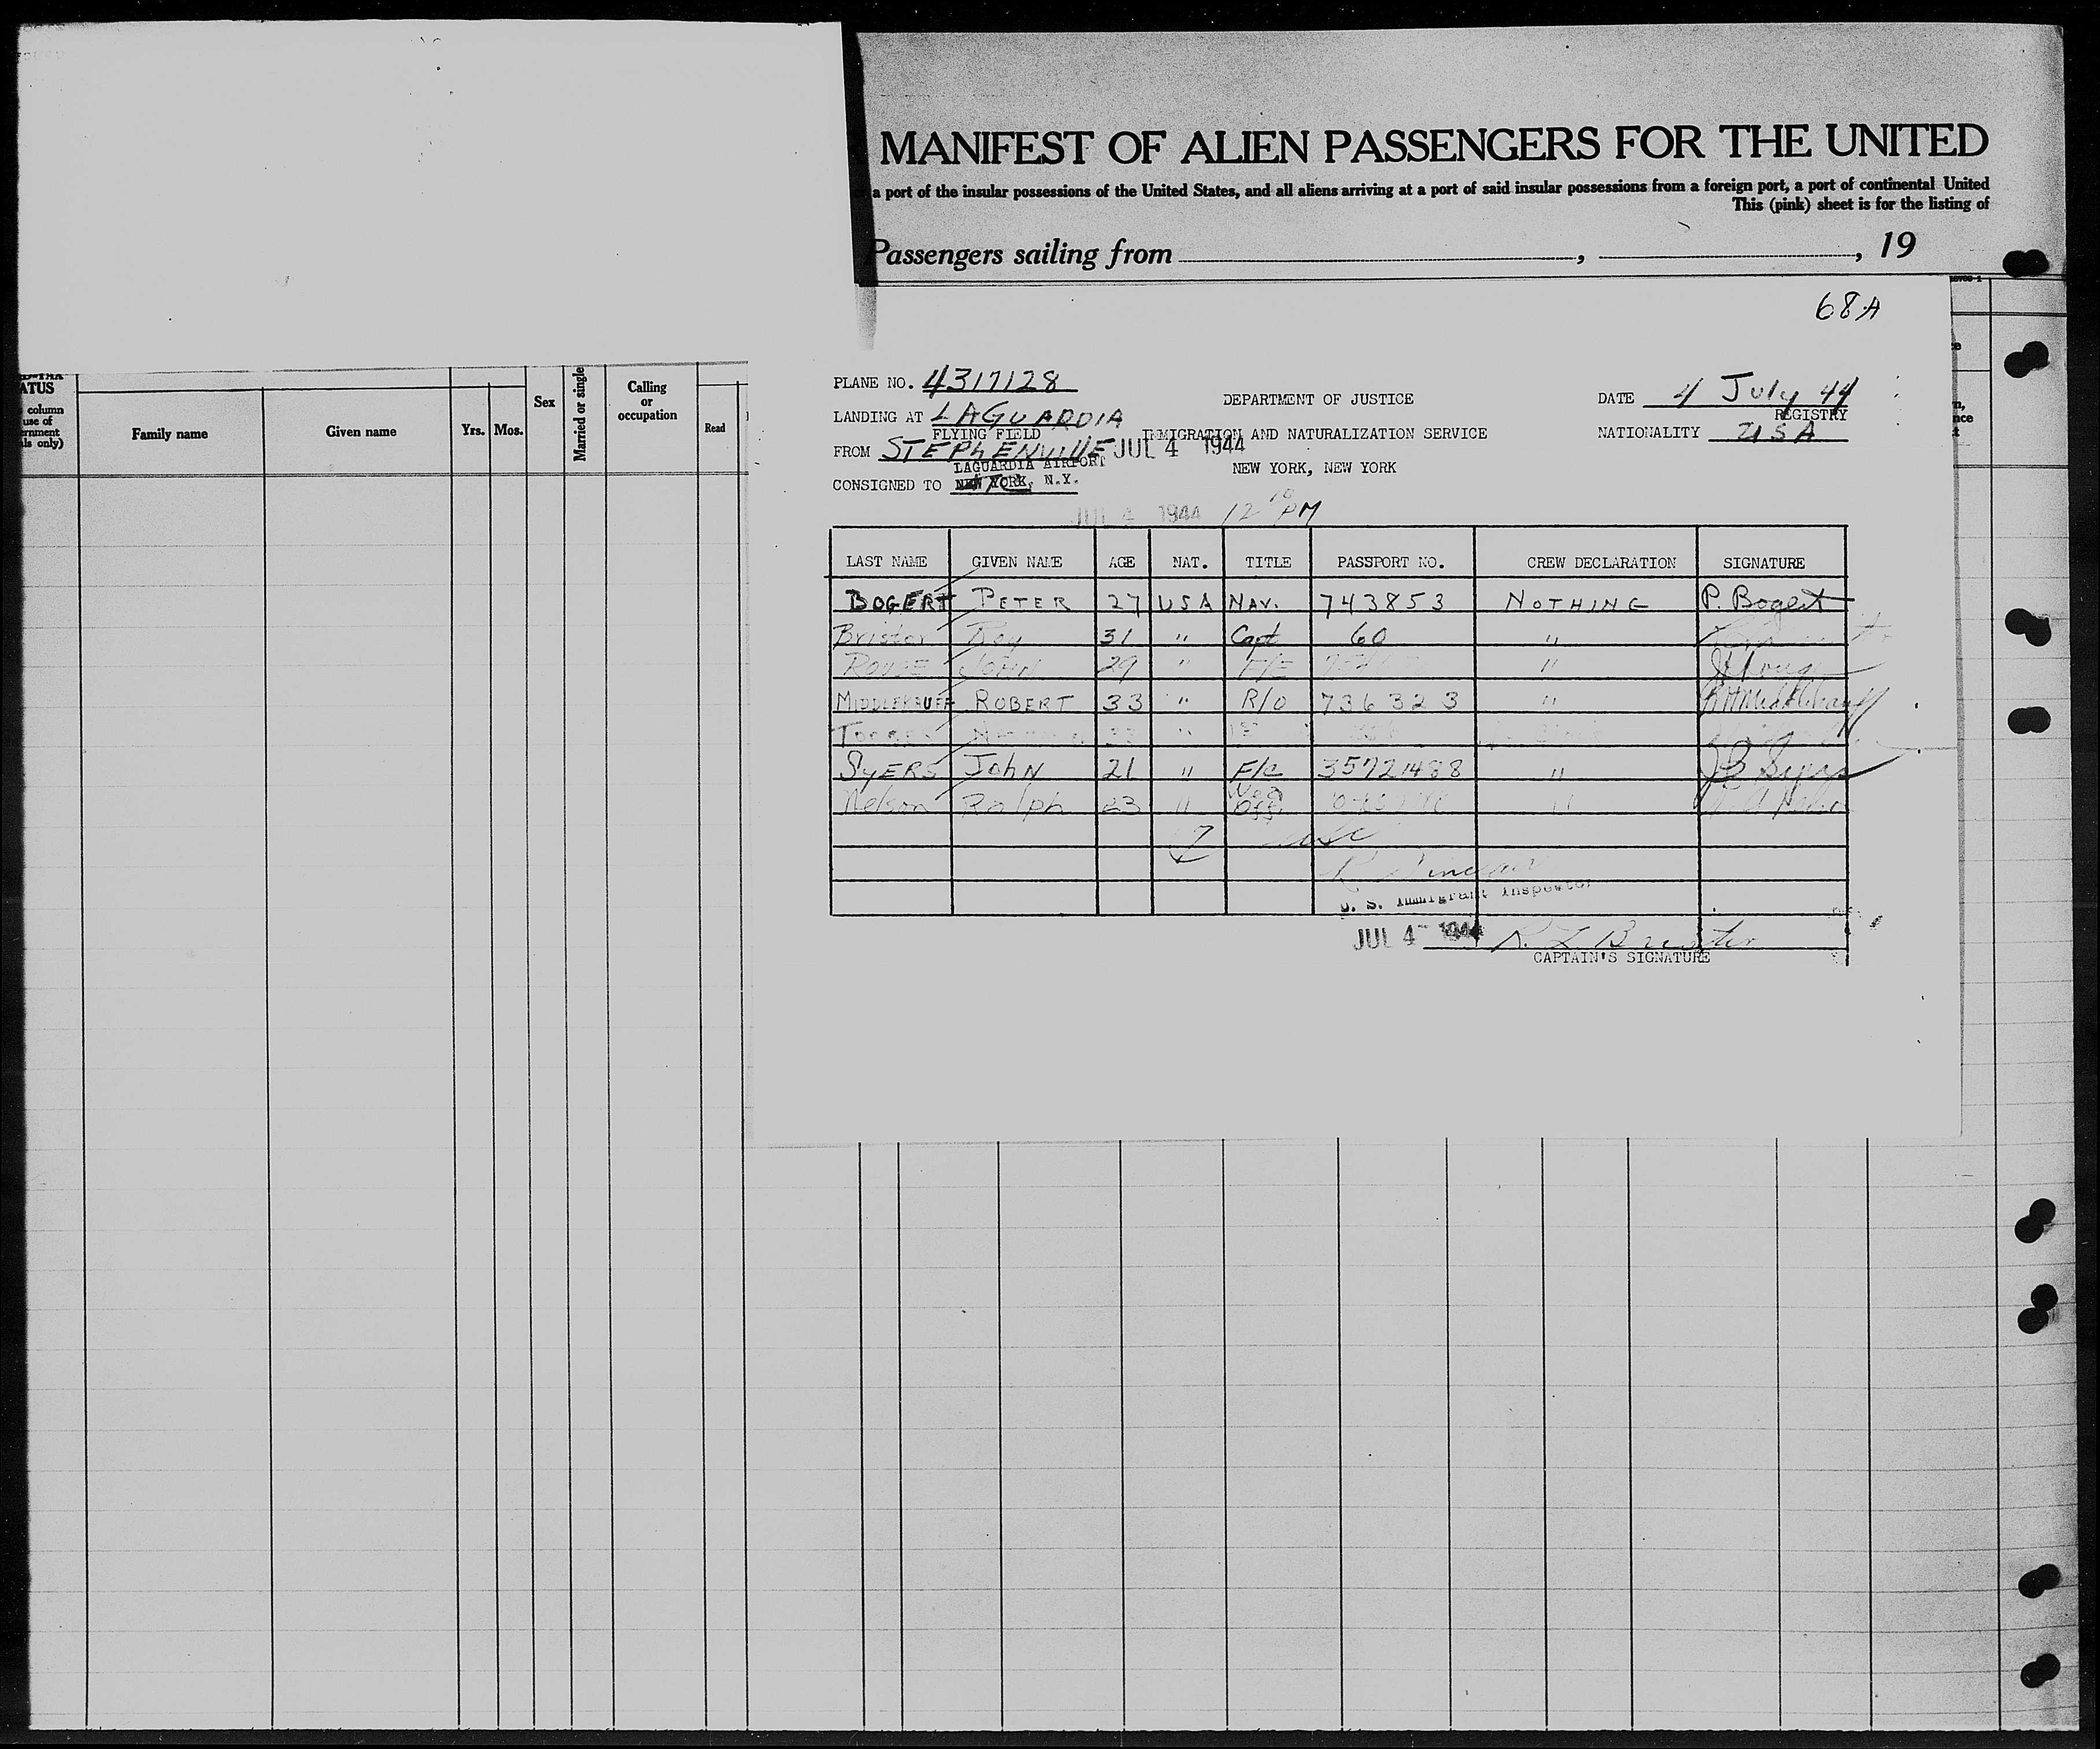 MANIFEST OF ALIEN PASSENGERS FOR THE UNITED
a port of the insular possessions of the United States, and all aliens arriving at a port of said insular possessions from a foreign port, a port of continental United
This (pink) sheet is for the listing of
Passengers sailing from , , 19
68A
ATUS
column
use of
ernment
ls only)
Family name
Given name
Yrs.
Mos.
Sex
Married or single
Calling
or
occupation
Read
PLANE NO. 4317128
LANDING AT LAGUARDIA
FLYING FIELD
FROM STEPHENVILLE JUL 4 1944
LAGUARDIA AIRPORT
CONSIGNED TO NEW YORK, N.Y.
DEPARTMENT OF JUSTICE
IMMIGRATION AND NATURALIZATION SERVICE
NEW YORK, NEW YORK
DATE 4 July 44
REGISTRY
NATIONALITY USA
JUL 4 1944 12 10 PM
LAST NAME GIVEN NAME AGE NAT. TITLE PASSPORT NO. CREW DECLARATION SIGNATURE
BOGERT PETER 27 USA NAV. 743853 NOTHING P. Bogert
Roy 31 " Capt 60 "
JOHN 29 " F/E "
MIDDLEKAUFF ROBERT 33 " R/O 736323 "
"
SyERS JohN 21 " F/C 35721488 " JB Syers
Nelson Ralph 23 " "
7
U. S. Immigrant Inspector
JUL 4 1944
CAPTAIN'S SIGNATURE